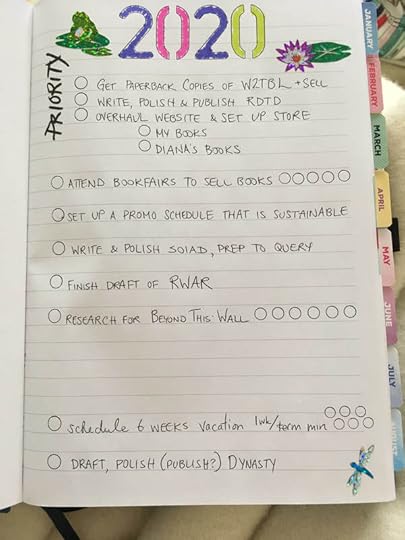 2020
PRIORITY
GET PAPERBACK COPIES OF W2TBL + SELL
WRITE, POLISH & PUBLISH RDTD
OVERHAUL WEBSITE & SET UP STORE
MY BOOKS
DIANA'S BOOKS
ATTEND BOOKFAIRS TO SELL BOOKS
SET UP A PROMO SCHEDULE THAT IS SUSTAINABLE
WRITE & POLISH SOIAD, PREP TO QUERY
FINISH DRAFT OF RWAR
RESEARCH FOR BEYOND THIS WALL
Schedule 6 WEEKS vacation 1wk/term min
DRAFT, POLISH (PUBLISH?) DYNASTY
JANUARY
FEBRUARY
MARCH
APRIL
MAY
JUNE
JULY
AUGUST